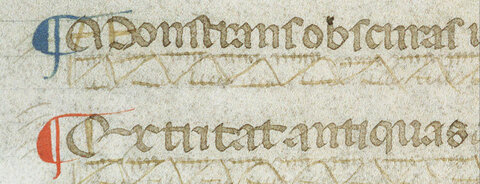 ¶ Monstrans obscuras
¶ Extirtat antiquas